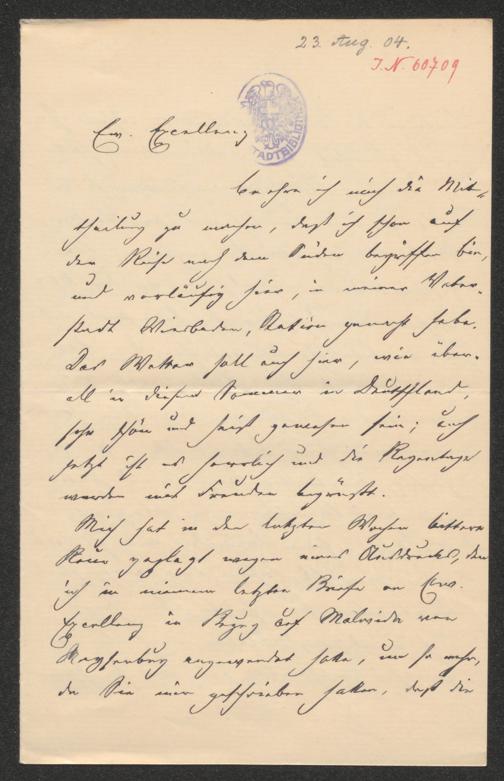 23. Aug. 04.
I. N. 60709
STADTBIBLIOTHEK
Ew. Excellenz
beehre ich mich die Mit-
theilung zu machen, daß ich schon auf
der Reise nach dem Süden begriffen bin,
und vorläufig hier, in meiner Vater-
stadt Wiesbaden, Station gemacht habe.
Das Wetter soll auch hier, wie über-
all in diesem Sommer in Deutschland,
sehr schön und heiß gewesen sein; auch
jetzt ist es herrlich und die Regentage
werden mit Freuden begrüßt.
Mich hat in den letzten Wochen bittere
Reue geplagt wegen eines Ausdrucks, den
ich in meinem letzten Briefe an Ew.
Excellenz in Bezug auf Malwida von
Meysenbug angewendet hatte, um so mehr,
da Sie mir geschrieben hatten, daß die